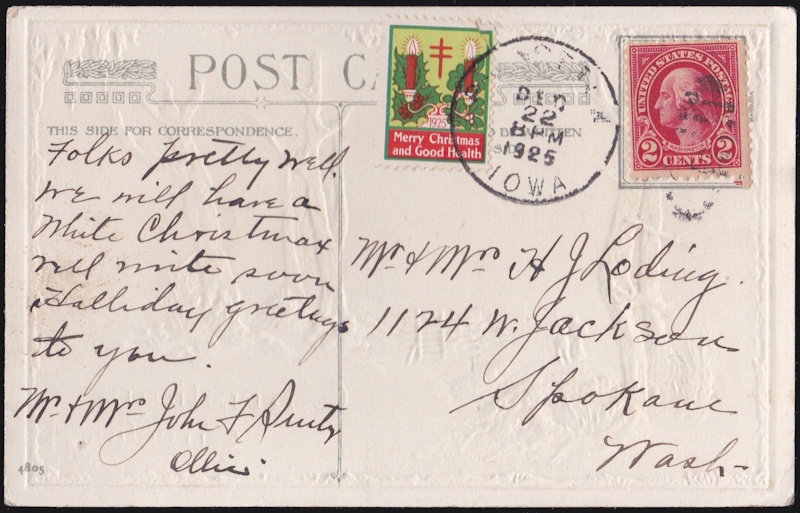 POST
THIS SIDE FOR CORRESPONDENCE.
Folks pretty well.
We will have a
White Christmax
will write soon
Halliday greetings
to you.
Mr & Mrs John F
Ollie
4805
1925
Merry Christmas
and Good Health
DEC
22
8 PM
1925
IOWA
UNITED STATES POSTAGE
WASHINGTON
2 CENTS 2
Mr & Mrs H J Loding.
1124 W. Jackson
Spokane
Wash-